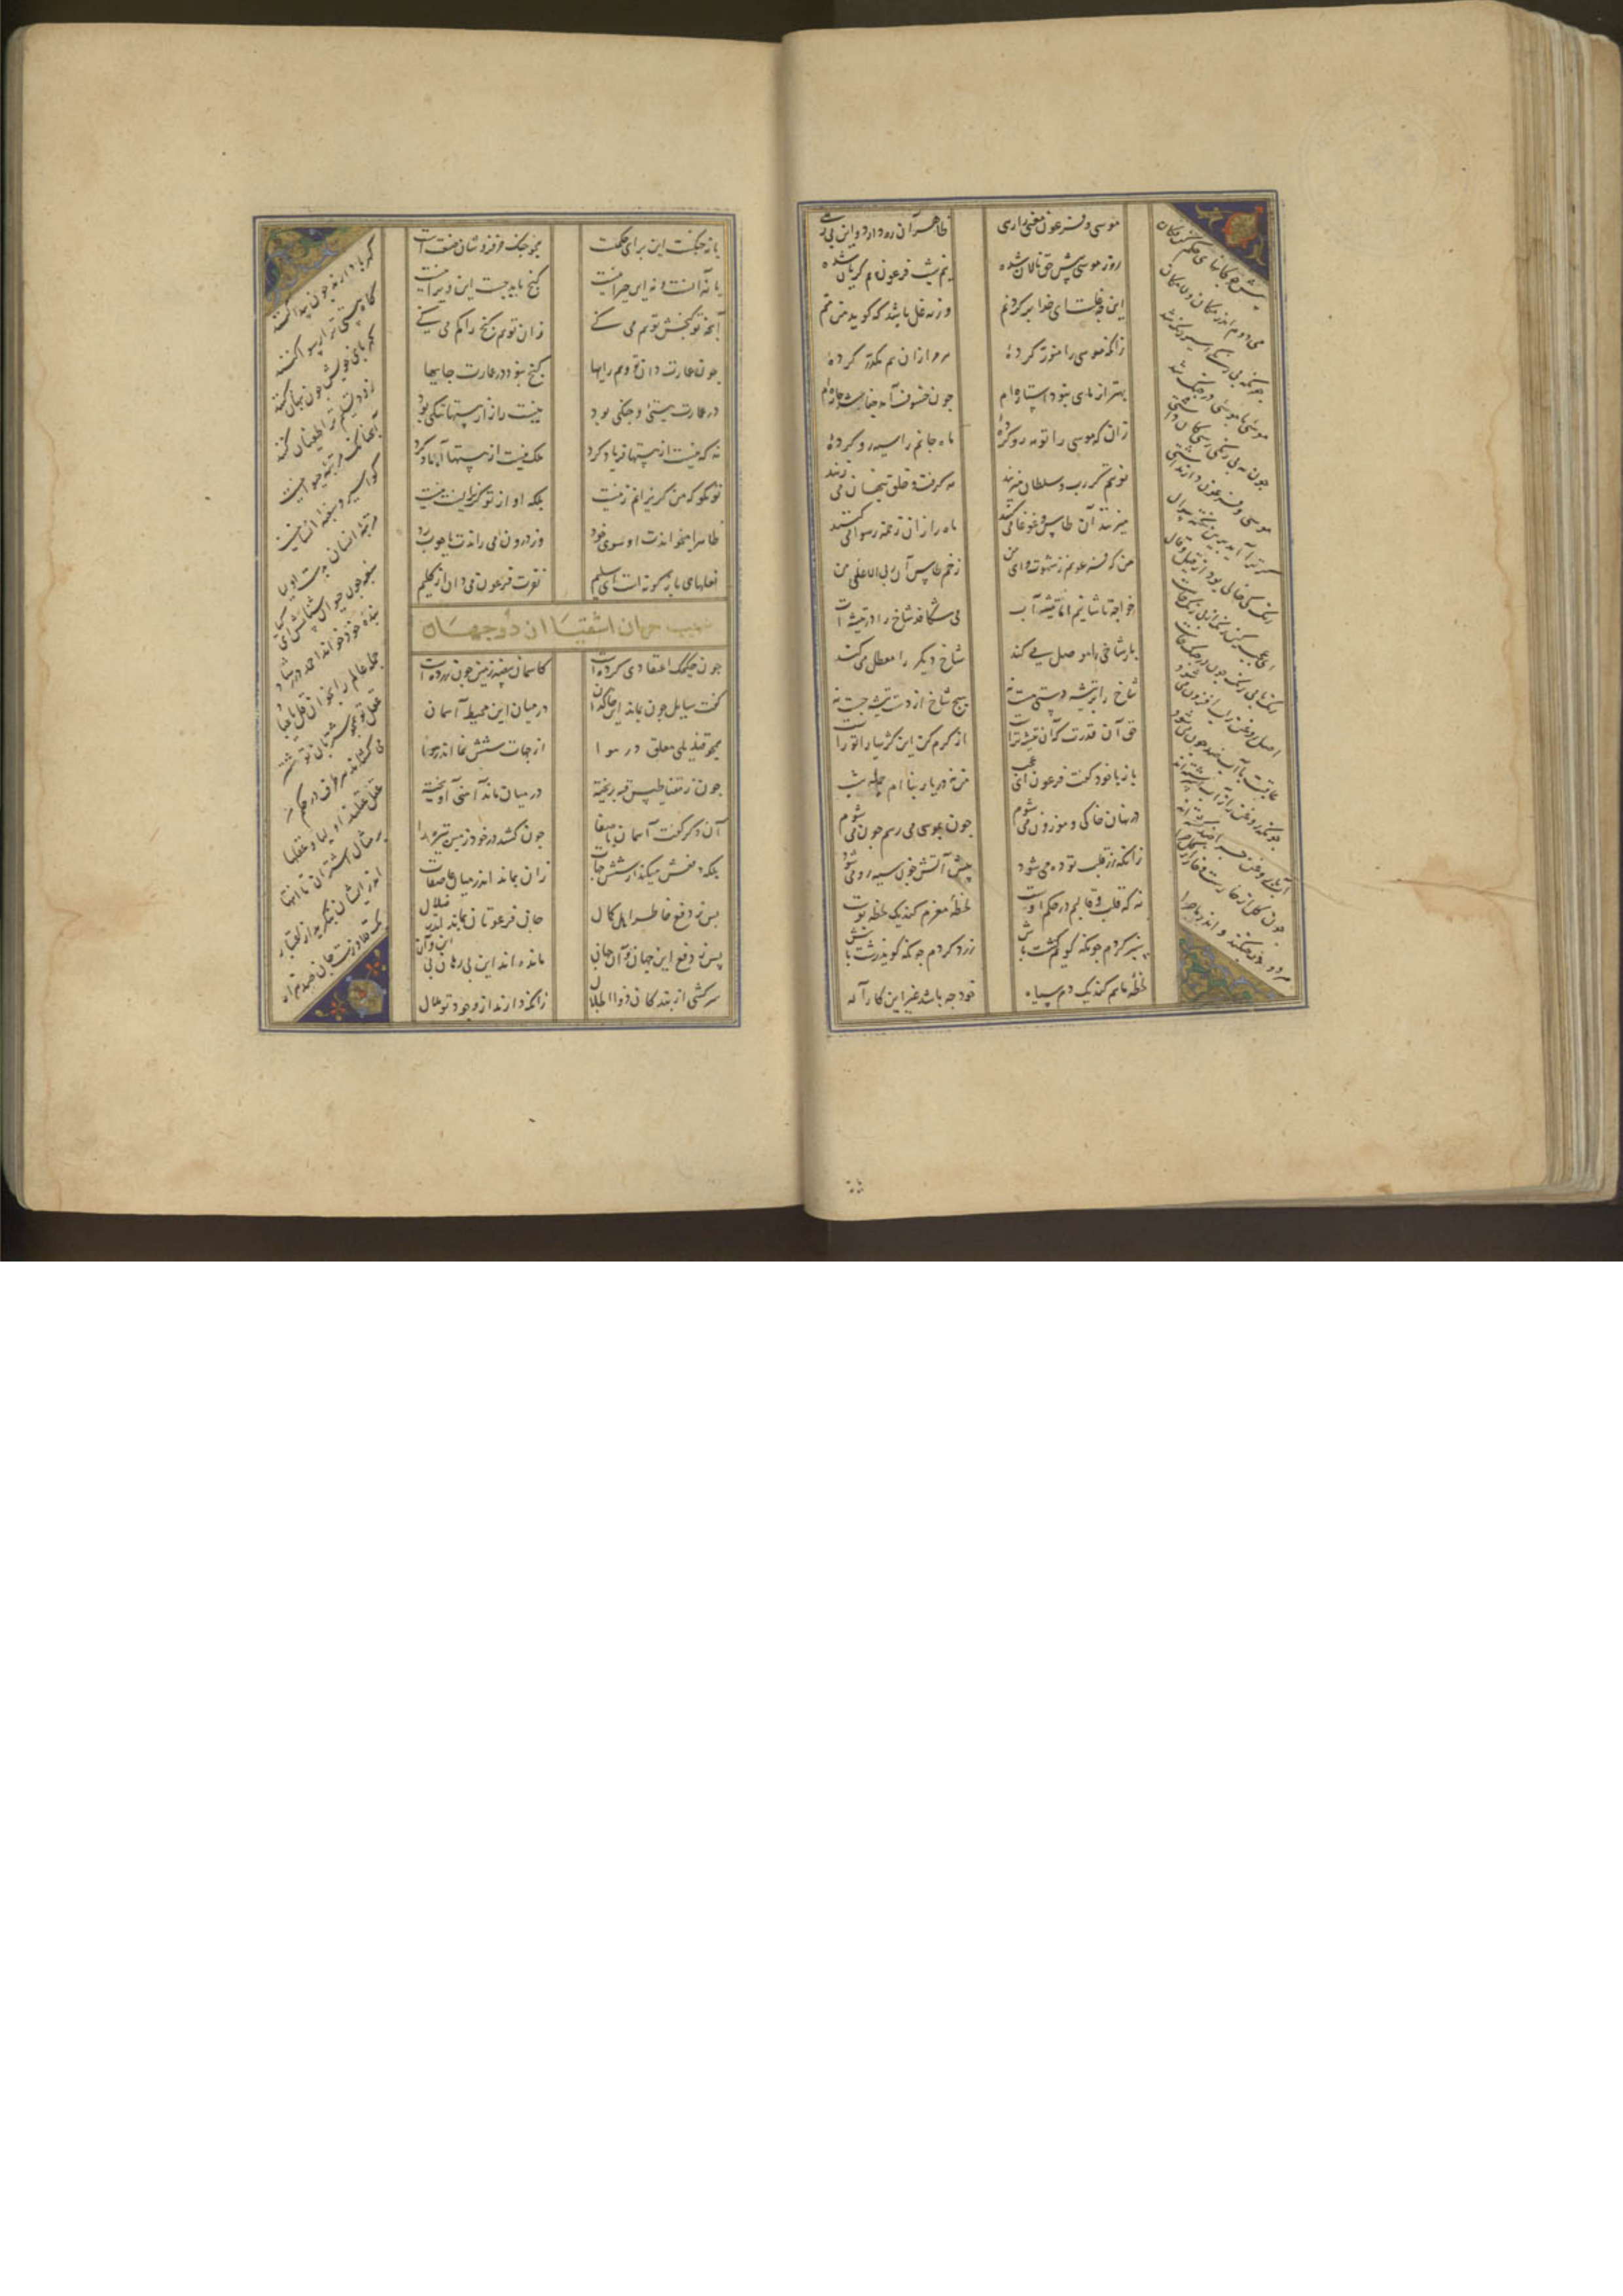 موسی و فرعون معنی را رهی
ظاهر آن ره دارد و این بی رهی
روز موسی پیش حق نالان شده
نیم شب فرعون هم گریان شده
کاین چه غلست ای خدا بر گردنم
ورنه غل باشد که گوید من منم
زانکه موسی را منور کرده
مر مرا زان هم مکدر کرده
بهتر از ماهی نبود استاره ام
چون خسوف آمد چه باشد چاره ام
زان که موسی را تو مه رو کرده
ماه جانم را سیه رو کرده
نوبتم گر رب و سلطان میزنند
مه گرفت و خلق پنگان می زنند
میزنند آن طاس و غوغا می کنند
ماه را زان زخمه رسوا می کنند
من که فرعونم ز شهرت وای من
زخم طاس آن ربی الاعلی من
خواجه تاشانیم اما تیشه ات
می شکافد شاخ را در بیشه ات
باز شاخی را موصل می کند
شاخ دیگر را معطل می کند
شاخ را بر تیشه دستی هست نه
هیچ شاخ از دست تیشه جست نه
حق آن قدرت که آن تیشه تراست
از کرم کن این کژیها را تو راست
باز با خود گفت فرعون ای عجب
من نه در یا ربنا ام جمله شب
در نهان خاکی و موزون می شوم
چون بموسی می رسم چون می شوم
زانکه زر قلب ده تو می شود
پیش آتش چون سیه رو می شود
نه که قلب و قالبم در حکم اوست
لحظه مغزم کند یک لحظه پوست
سبز گردم چونکه گوید کشت باش
زرد گردم چونکه گوید زشت باش
لحظه ماهم کند یک دم سیاه
خود چه باشد غیر این کار آله
پیش چوگانهای حکم کن فکان
می دویم اندر مکان و لامکان
چونکه بی رنگی اسیر رنگ شد
موسیی با موسیی در جنگ شد
چون به بی رنگی رسی کان داشتی
موسی و فرعون دارند آشتی
گر ترا آید برین نکته سوال
رنگ کی خالی بود از قیل و قال
این عجب کین رنگ از بی رنگ خاست
رنگ با بی رنگ چون در جنگ خاست
اصل روغن ز آب افزون می شود
عاقبت با آب ضد چون می شود
چونکه روغن را ز آب اسرشته اند
آب با روغن چرا ضد گشته اند
چون گل از خارست و خار از گل چرا
هر دو در جنگند و اندر ماجرا
یا نه جنگست این برای حکمتست
همچو جنگ خر فروشان صنعتست
یا نه اینست و نه آن حیرانیست
گنج باید جست این ویرانیست
آنچه تو گنجش توهم می کنی
زان توهم گنج را گم می کنی
چون عمارت دان تو وهم و رایها
گنج نبود در عمارت جایها
در عمارت هستی و جنگی بود
نیست را از هستها ننگی بود
نه که هست از نیستی فریاد کرد
بلکه نیست از هستها آباد کرد
تو مگو که من گریزانم ز نیست
بلکه او از تو گریزانست بیست
ظاهرا میخواندت او سوی خود
وز درون می راندت با چوب رد
نعلهای باژگونه است ای سلیم
نفرت فرعون می دان از کلیم
سبب حرمان اشقیا از دو جهان
چون حکیمک اعتقادی کرده است
کاسمان بیضه زمین چون زرده است
گفت سایل چون بماند این خاکدان
در میان این محیط آسمان
همچو قندیلی معلق در هوا
از جهات شش بماند اندر هوا
چون ز مغناطیس قبه ریخته
در میان ماند آهنی آویخته
آن دگر گفت آسمان با صفا
چون کشد در خود زمین تیره را
بلکه دفعش میکند از شش جهات
زان بماند اندر میان عاصفات
پس ز دفع خاطر اهل کمال
جان فرعونان بماند اندر ضلال
پس ز دفع این جهان و آن جهان
مانده اند این بی رهان بی این و آن
سر کشی از بندگان ذوالجلال
زانکه دارند از وجود تو ملال
کهربا دارند چون پیدا کنند
کاه هستی ترا رسوا کنند
کهربای خویش چون پنهان کنند
زود تسلیم ترا طغیان کنند
آنچنانک مرتبه حیوانیست
کو اسیر و سغبه انسانیست
مرتبه انسان بدست اولیا
سغبه چون حیوان شناسش ای کیا
بنده خود خواند احمد در رشاد
جمله عالم را بخوان قل یا عباد
عقل تو همچون شتربان تو شتر
می کشاند هر طرف در حکم مر
عقل عقلند اولیا و عقلها
بر مثال اشتران تا انتها
اندر ایشان بنگر آخر ز اعتبار
یک قلاوزست جان صد هزار